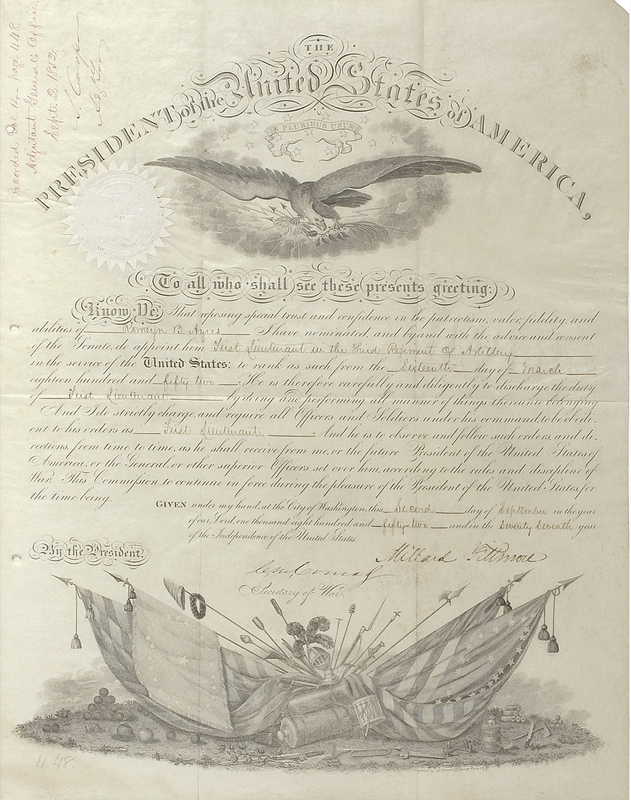 Recorded Vol. 14. Page 448.
Adjutant General's Office
Sept. 2. 1852.
S. Cooper
THE
PRESIDENT of the United States of AMERICA,
E PLURIBUS UNUM
To all who shall see these presents greeting:
Know Ye, That reposing special trust and confidence in the patriotism, valor, fidelity, and
abilities of Romeyn B. Ayres I have nominated, and by and with the advice and consent
of the Senate, do appoint him First Lieutenant in the Third Regiment of Artillery
in the service of the United States: to rank as such from the Sixteenth day of March
eighteen hundred and fifty two. He is therefore carefully and diligently to discharge the duty
of First Lieutenant by doing and performing all manner of things thereunto belonging.
And I do strictly charge, and require all Officers and Soldiers under his command, to be obedi-
ent to his orders as First Lieutenant. And he is to observe and follow such orders, and di-
rections, from time to time, as he shall receive from me, or the future President of the United States of
America, or the General, or other superior Officers set over him, according to the rules and discipline of
War. This Commission to continue in force during the pleasure of the President of the United States, for
the time being.
GIVEN under my hand, at the City of Washington, this Second day of September in the year
of our Lord, one thousand eight hundred and fifty two and in the Seventy Seventh year
of the Independence of the United States.
By the President,
Millard Fillmore
C. M. Conrad
Secretary of War.
448.